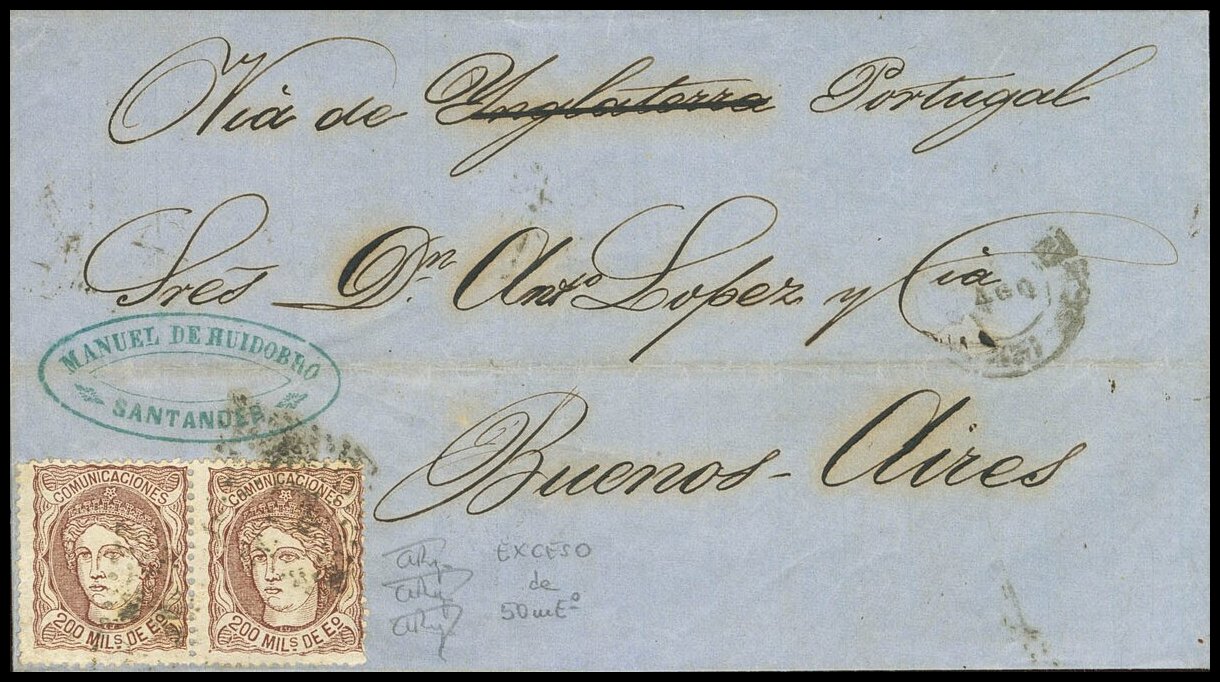 Vià de Inglaterra Portugal
Srēs Dn Anto Lopez y Cia
AGO
MANUEL DE HUIDOBRO
SANTANDER
Buenos-Aires
COMUNICACIONES
200 MILS DE Eo
COMUNICACIONES
200 MILS DE Eo
EXCESO
de
50 m Eo